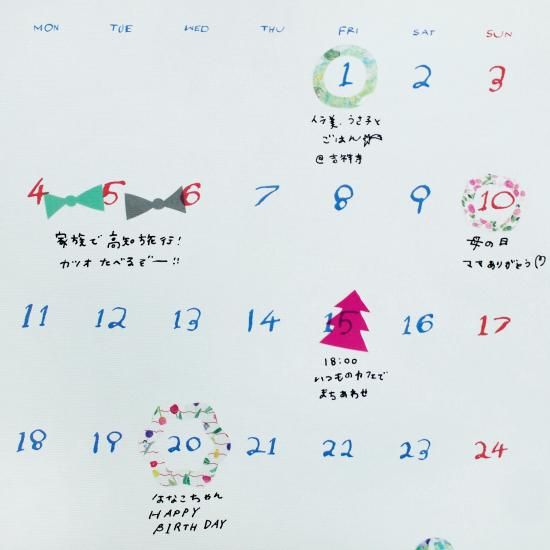 MON TUE WED THU FRI SAT SUN
1 2 3
うさ子と
ごはん
@吉祥寺
4 5 6 7 8 9 10
家族で高知旅行!
カツオたべるぞー!!
母の日
ママありがとう
11 12 13 14 15 16 17
18:00
いつものカフェで
まちあわせ
18 19 20 21 22 23 24
はなこちゃん
HAPPY
BIRTHDAY